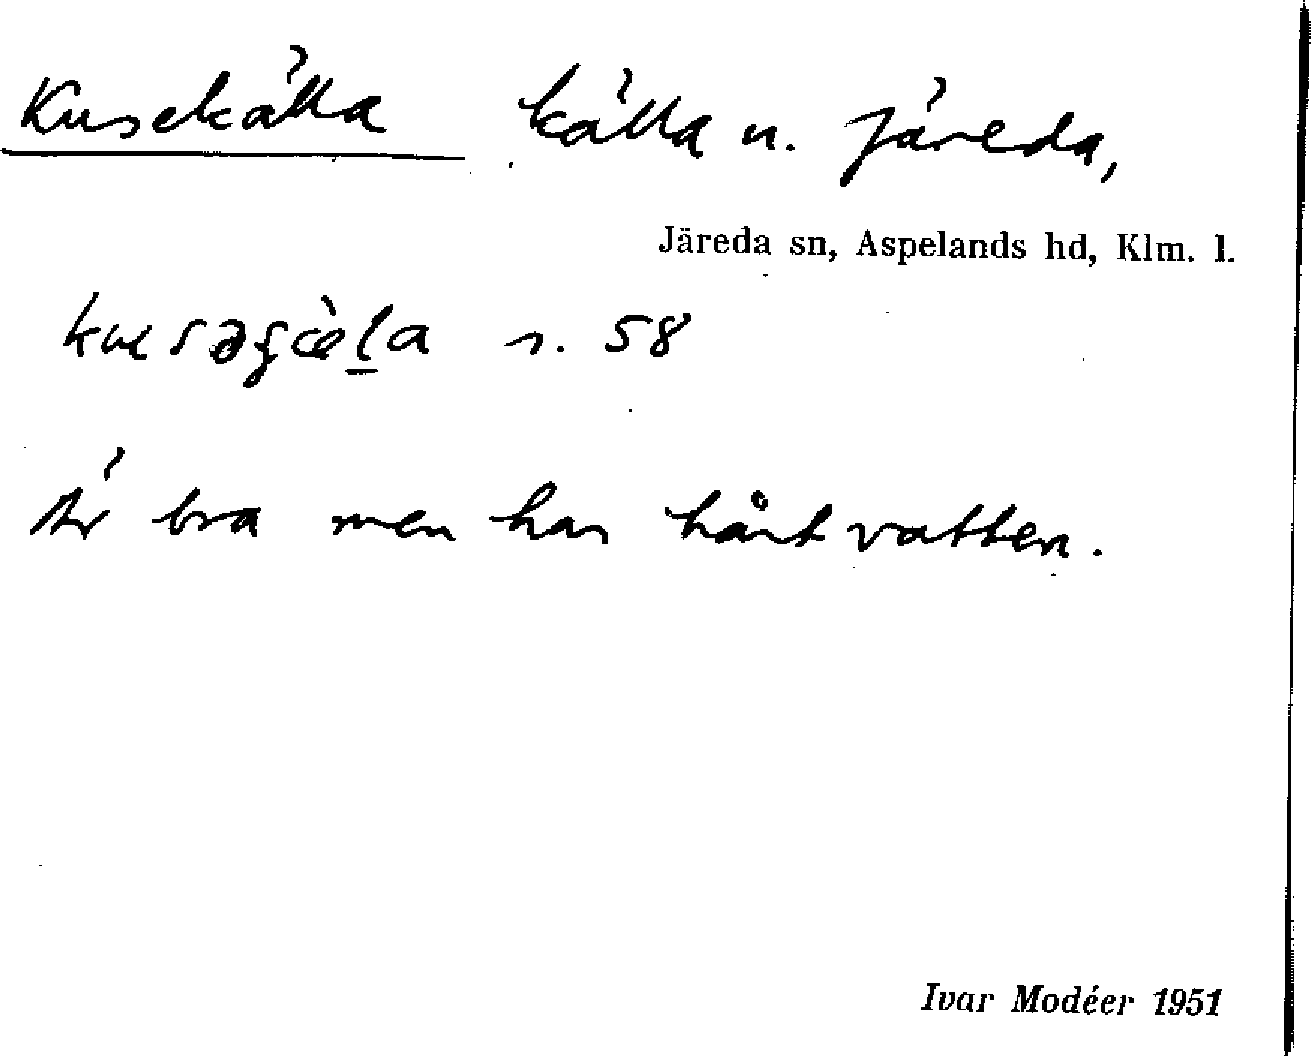 Kusekälla källa n. Järeda,
Järeda sn, Aspelands hd, Klm. l.
s. 58
Är bra men har hårt vatten.
Ivar Modéer 1951